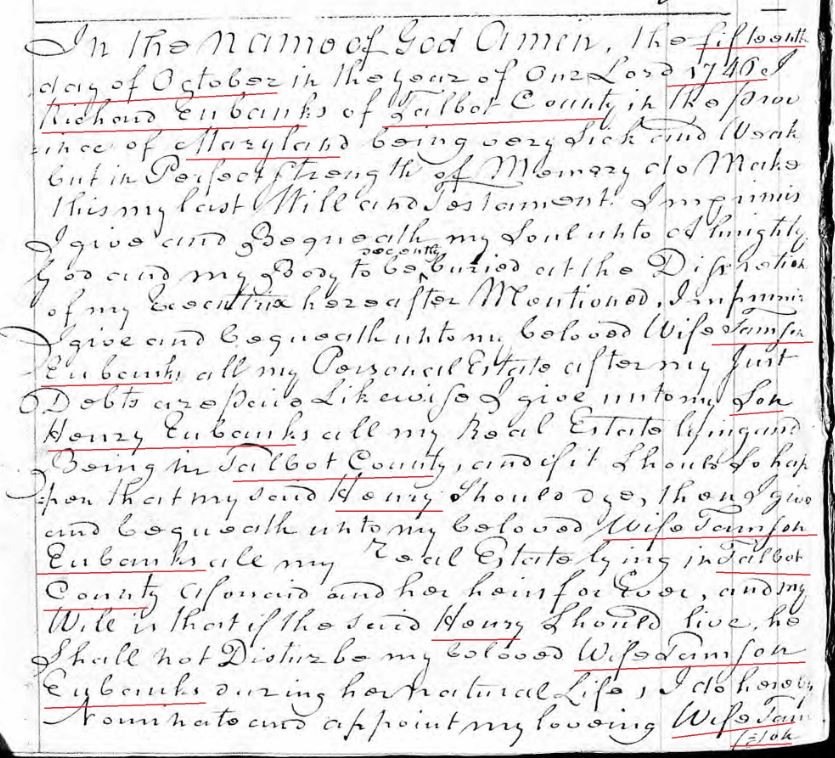 In the name of God Amen, the fifteenth
day of October in the year of Our Lord 1746 I
Richard Eubanks of Talbot County in the prov
=ince of Maryland being very Sick and Weak
but in Perfect strength of Memory do Make
this my last Will and Testament. Imprimis
I give and Bequeath my Soul unto Almighty
decently
God and my Body to be ^ buried at the Discretion
of my Executrix hereafter Mentioned, Imprimis
I give and bequeath unto my beloved Wife Tamson
Eubanks all my Personal Estate after my Just
Debts are paid Likewise I give unto my Son
Henry Eubanks all my Real Estate lying and
Being in Talbot County, and if it Should So hap
=pen that my said Henry Should dye, then I give
and bequeath unto my beloved Wife Tamson
Eubanks all my Real Estate lying in Talbot
County aforsaid and her heirs for Ever, and my
Will is that if the said Henry Should live, he
Shall not Disturbe my beloved Wife Tamson
Eubanks during her natural Life, I do hereby
Nominate and appoint my loveing Wife Tam
=son